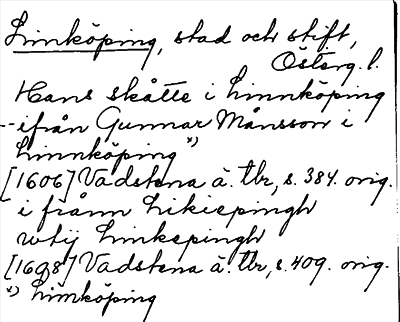 Linköping, stad och stift,
Österg. l.
Hans skåtte i Linnköping
-- ifrån Gunnar Månsson i
Linnköping*)
[1606] Vadstena ä. tbr, s. 384. orig.
i frånn Likiepingh
wtij Linkepingh
[1608] Vadstena ä. tbr, s. 409. orig.
*) Linköping